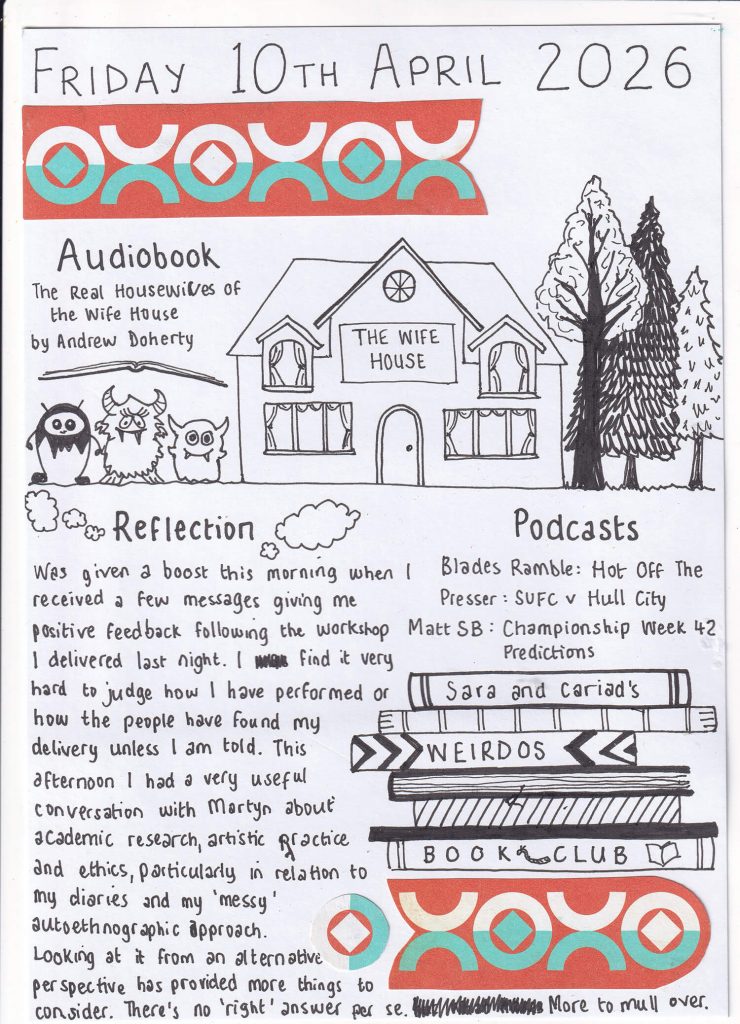 FRIDAY 10TH APRIL 2026
Audiobook
The Real Housewives of
the Wife House
by Andrew Doherty
THE WIFE
HOUSE
Reflection
Was given a boost this morning when I
received a few messages giving me
positive feedback following the workshop
I delivered last night. I find it very
hard to judge how I have performed or
how the people have found my
delivery unless I am told. This
afternoon I had a very useful
conversation with Martyn about
academic research, artistic practice
and ethics, particularly in relation to
my diaries and my 'messy'
autoethnographic approach.
Looking at it from an alternative
perspective has provided more things to
consider. There's no 'right' answer per se. More to mull over.
Podcasts
Blades Ramble: Hot Off The
Presser: SUFC v Hull City
Matt SB: Championship Week 42
Predictions
Sara and Cariad's
WEIRDOS
BOOK CLUB